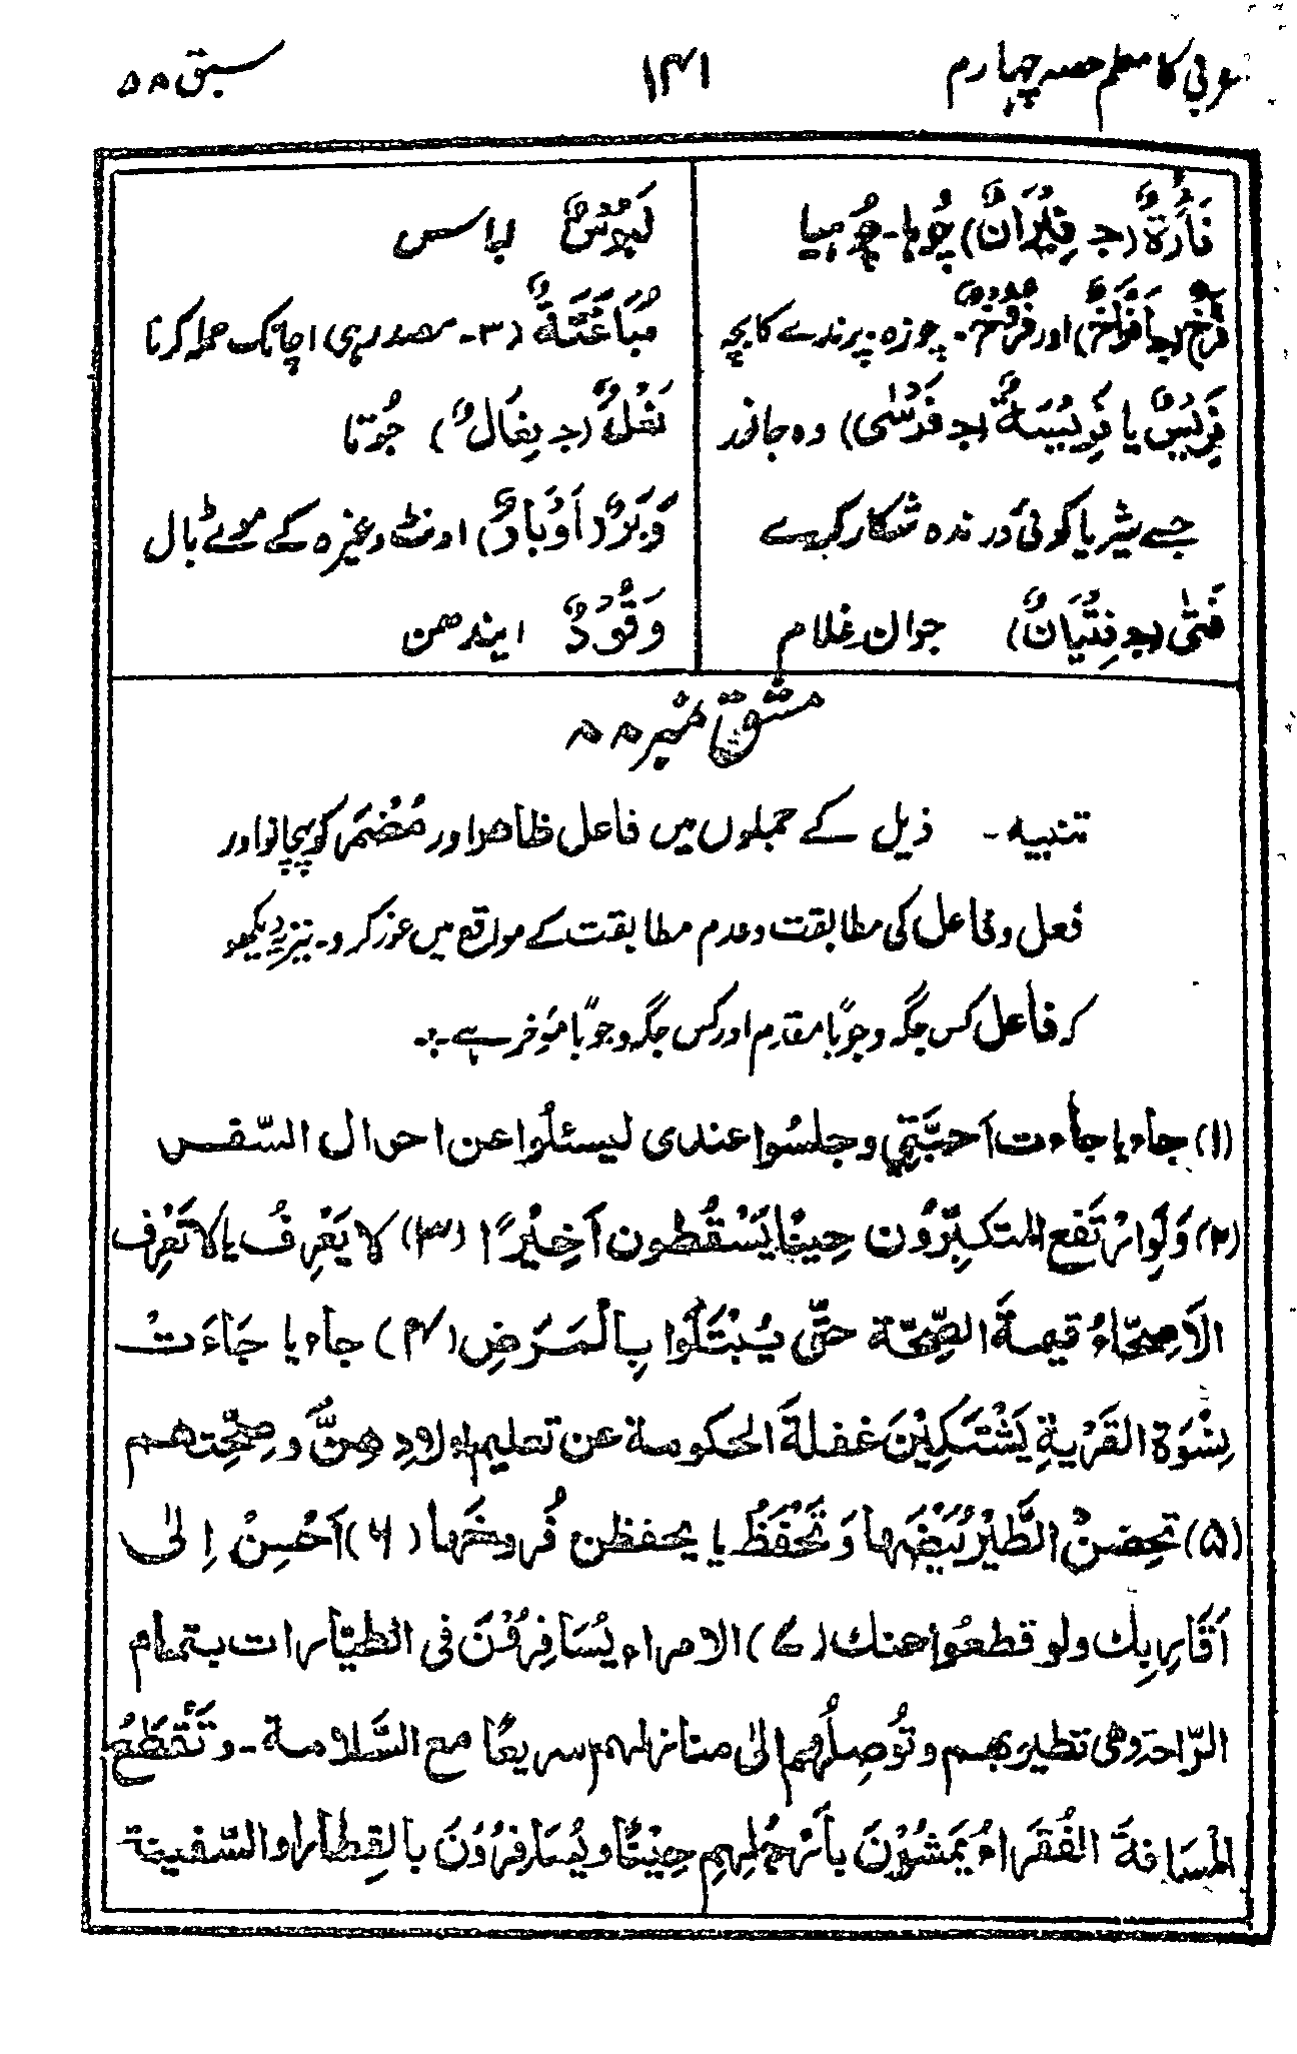 عربی کا معلم حصہ چہارم
۱۴۱
سبق ۵۸
فَأْرَةٌ (جـ فِئْرَانٌ) چُوہا۔ چُوہیا
فَرْخٌ (جـ أَفْرَاخٌ) اور فُرُوْخٌ۔ چوزہ، پرندے کا بچہ
فَرِيْسٌ یا فَرِيْسَةٌ (جـ فَرْسٰى) وہ جانور
جسے شیر یا کوئی درندہ شکار کرے
فَتًى (جـ فِتْيَانٌ) جوان۔ غلام
لَبُوْسٌ لباس
مُبَاغَتَةٌ (۳۔ مصدر ہی) اچانک حملہ کرنا
نَعْلٌ (جـ نِعَالٌ) جُوتا
وَبَرٌ (أَوْبَارٌ) اونٹ وغیرہ کے موٹے بال
وَقُوْدٌ ایندھن
مشق نمبر ۸۸
تنبیہ۔ ذیل کے جملوں میں فاعل ظاهر اور مُضْمَر کو پہچانو اور
فعل و فاعل کی مطابقت و عدم مطابقت کے مواقع میں غور کرو۔ نیز یہ دیکھو
کہ فاعل کس جگہ وجوبًا مقدم اور کس جگہ وجوبًا مؤخر ہے۔:۔
(۱) جاء یا جاءت أحبَّتِي وجلسُوا عندى ليسئلُوا عن احوال السّفر
(۲) وَلَوِ ارْتَفع المتكبّرُون حِينًا يَسْقُطون أَخِيْرًا (۳) لا يَعْرِفُ یا لا تَعْرِف
الأَصِحّاءُ قيمةَ الصِّحّة حتّى يُبْتَلَوْا بِالْمَرَضِ (۴) جاء یا جَاءَتْ
نِسْوَة القَرْيةِ يَشْتَكِيْنَ غفلةَ الحكومة عن تعليم اولادِهِنَّ وصِحّتهم
(۵) تحضنُ الطَّيْرُ بَيْضَها وَتَحْفَظُ یا يحفظن فُروخَها (۶) أَحْسِنْ إِلىٰ
أَقَارِبِك ولو قطعُوا عنك (۷) الامراء يُسَافِرُوْنَ فى الطيّارات بتمام
الرّاحة وهى تطير بهم وتُوصِلُهم الىٰ منازلهم سريعًا مع السَّلامة۔ وتَقْطَعُ
الْمَسَافةَ الفُقَراءُ يَمْشُوْنَ بأَرْجُلِهِم حِيْنًا ويُسَافِرُوْنَ بالقِطار او السّفينة